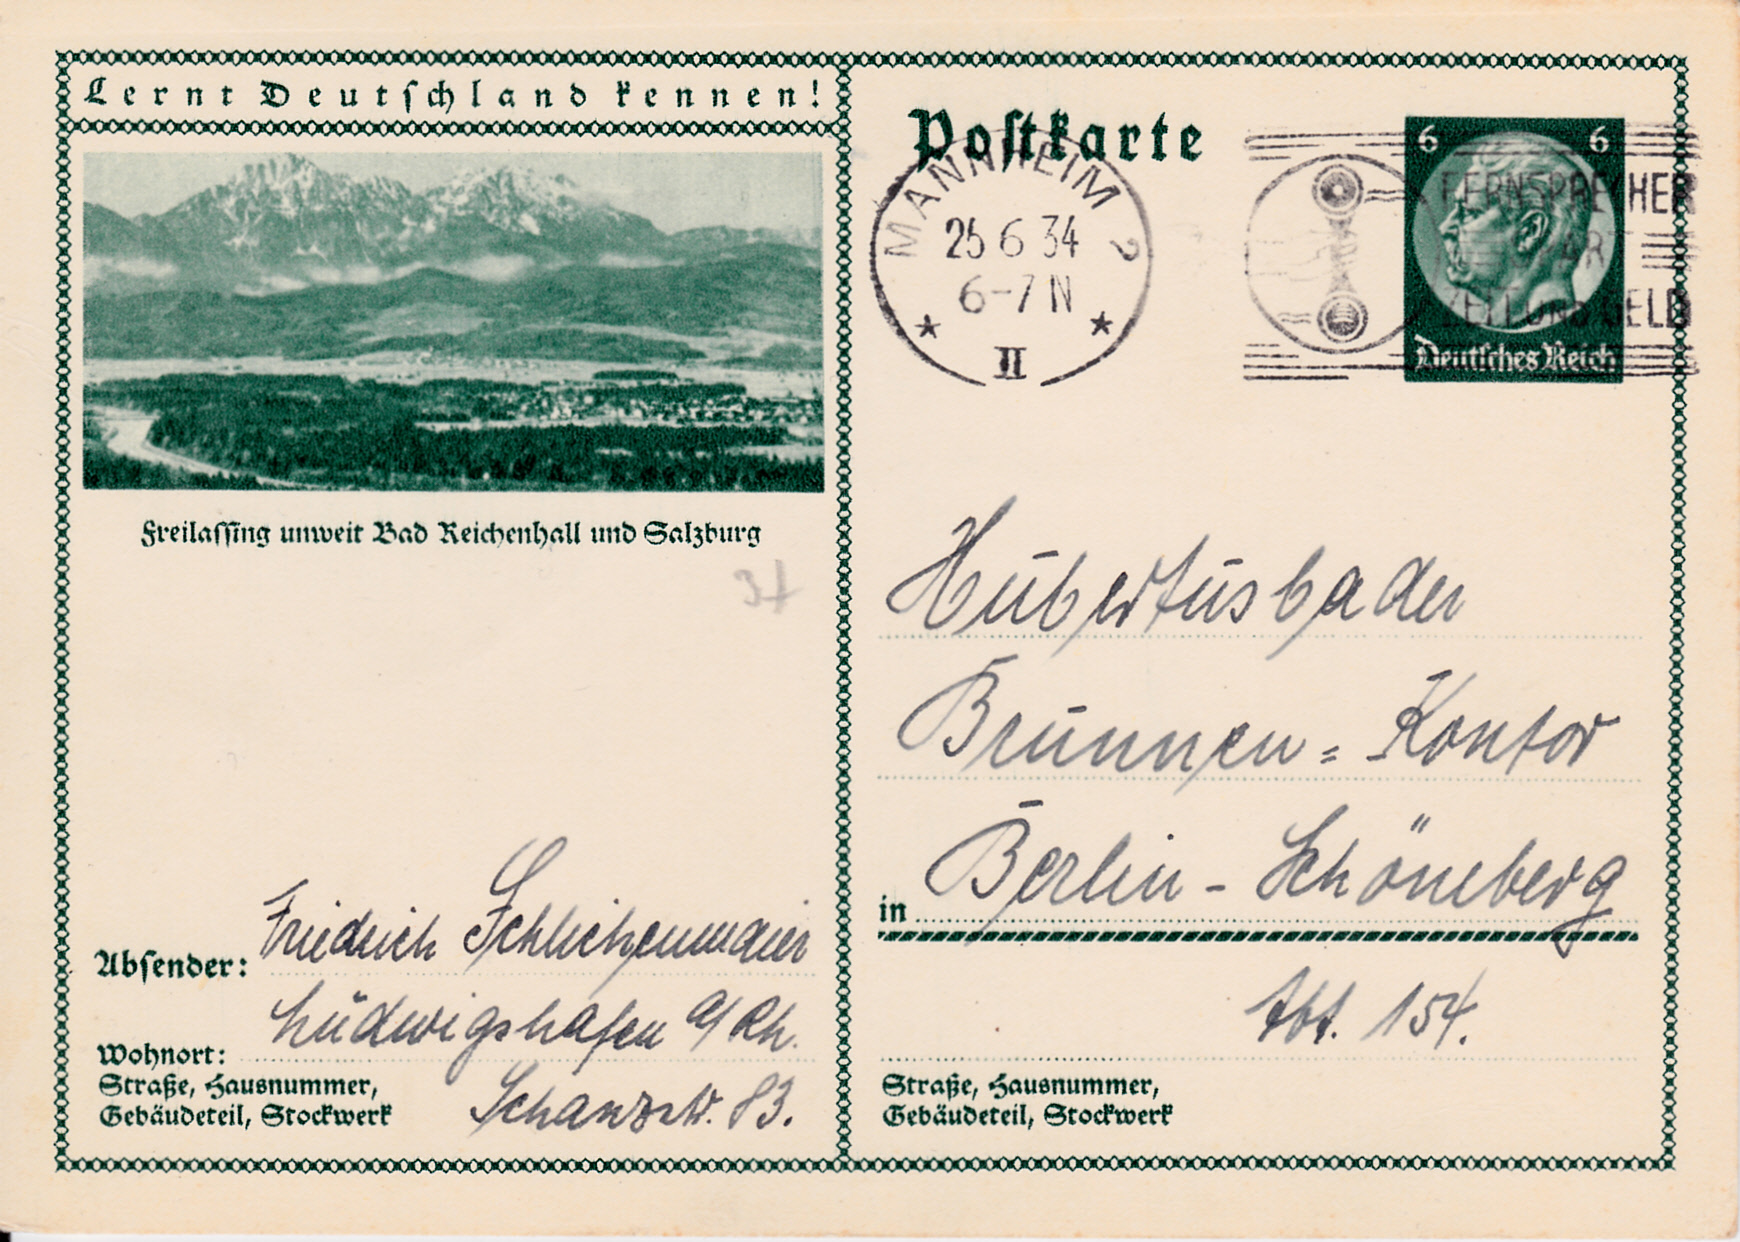 Lernt Deutschland kennen!
Freilassing unweit Bad Reichenhall und Salzburg
Absender: Friedrich Schlichenmaier
Wohnort: Ludwigshafen a/Rh.
Straße, Hausnummer,
Gebäudeteil, Stockwerk
Schanzstr. 83.
Postkarte
MANNHEIM 2
25 6 34
6-7 N
II
FERNSPRECHER
ZEIT UND GELD
6 6
Deutsches Reich
Hubertusbader
Brunnen = Kontor
in Berlin - Schöneberg
Abt. 154.
Straße, Hausnummer,
Gebäudeteil, Stockwerk